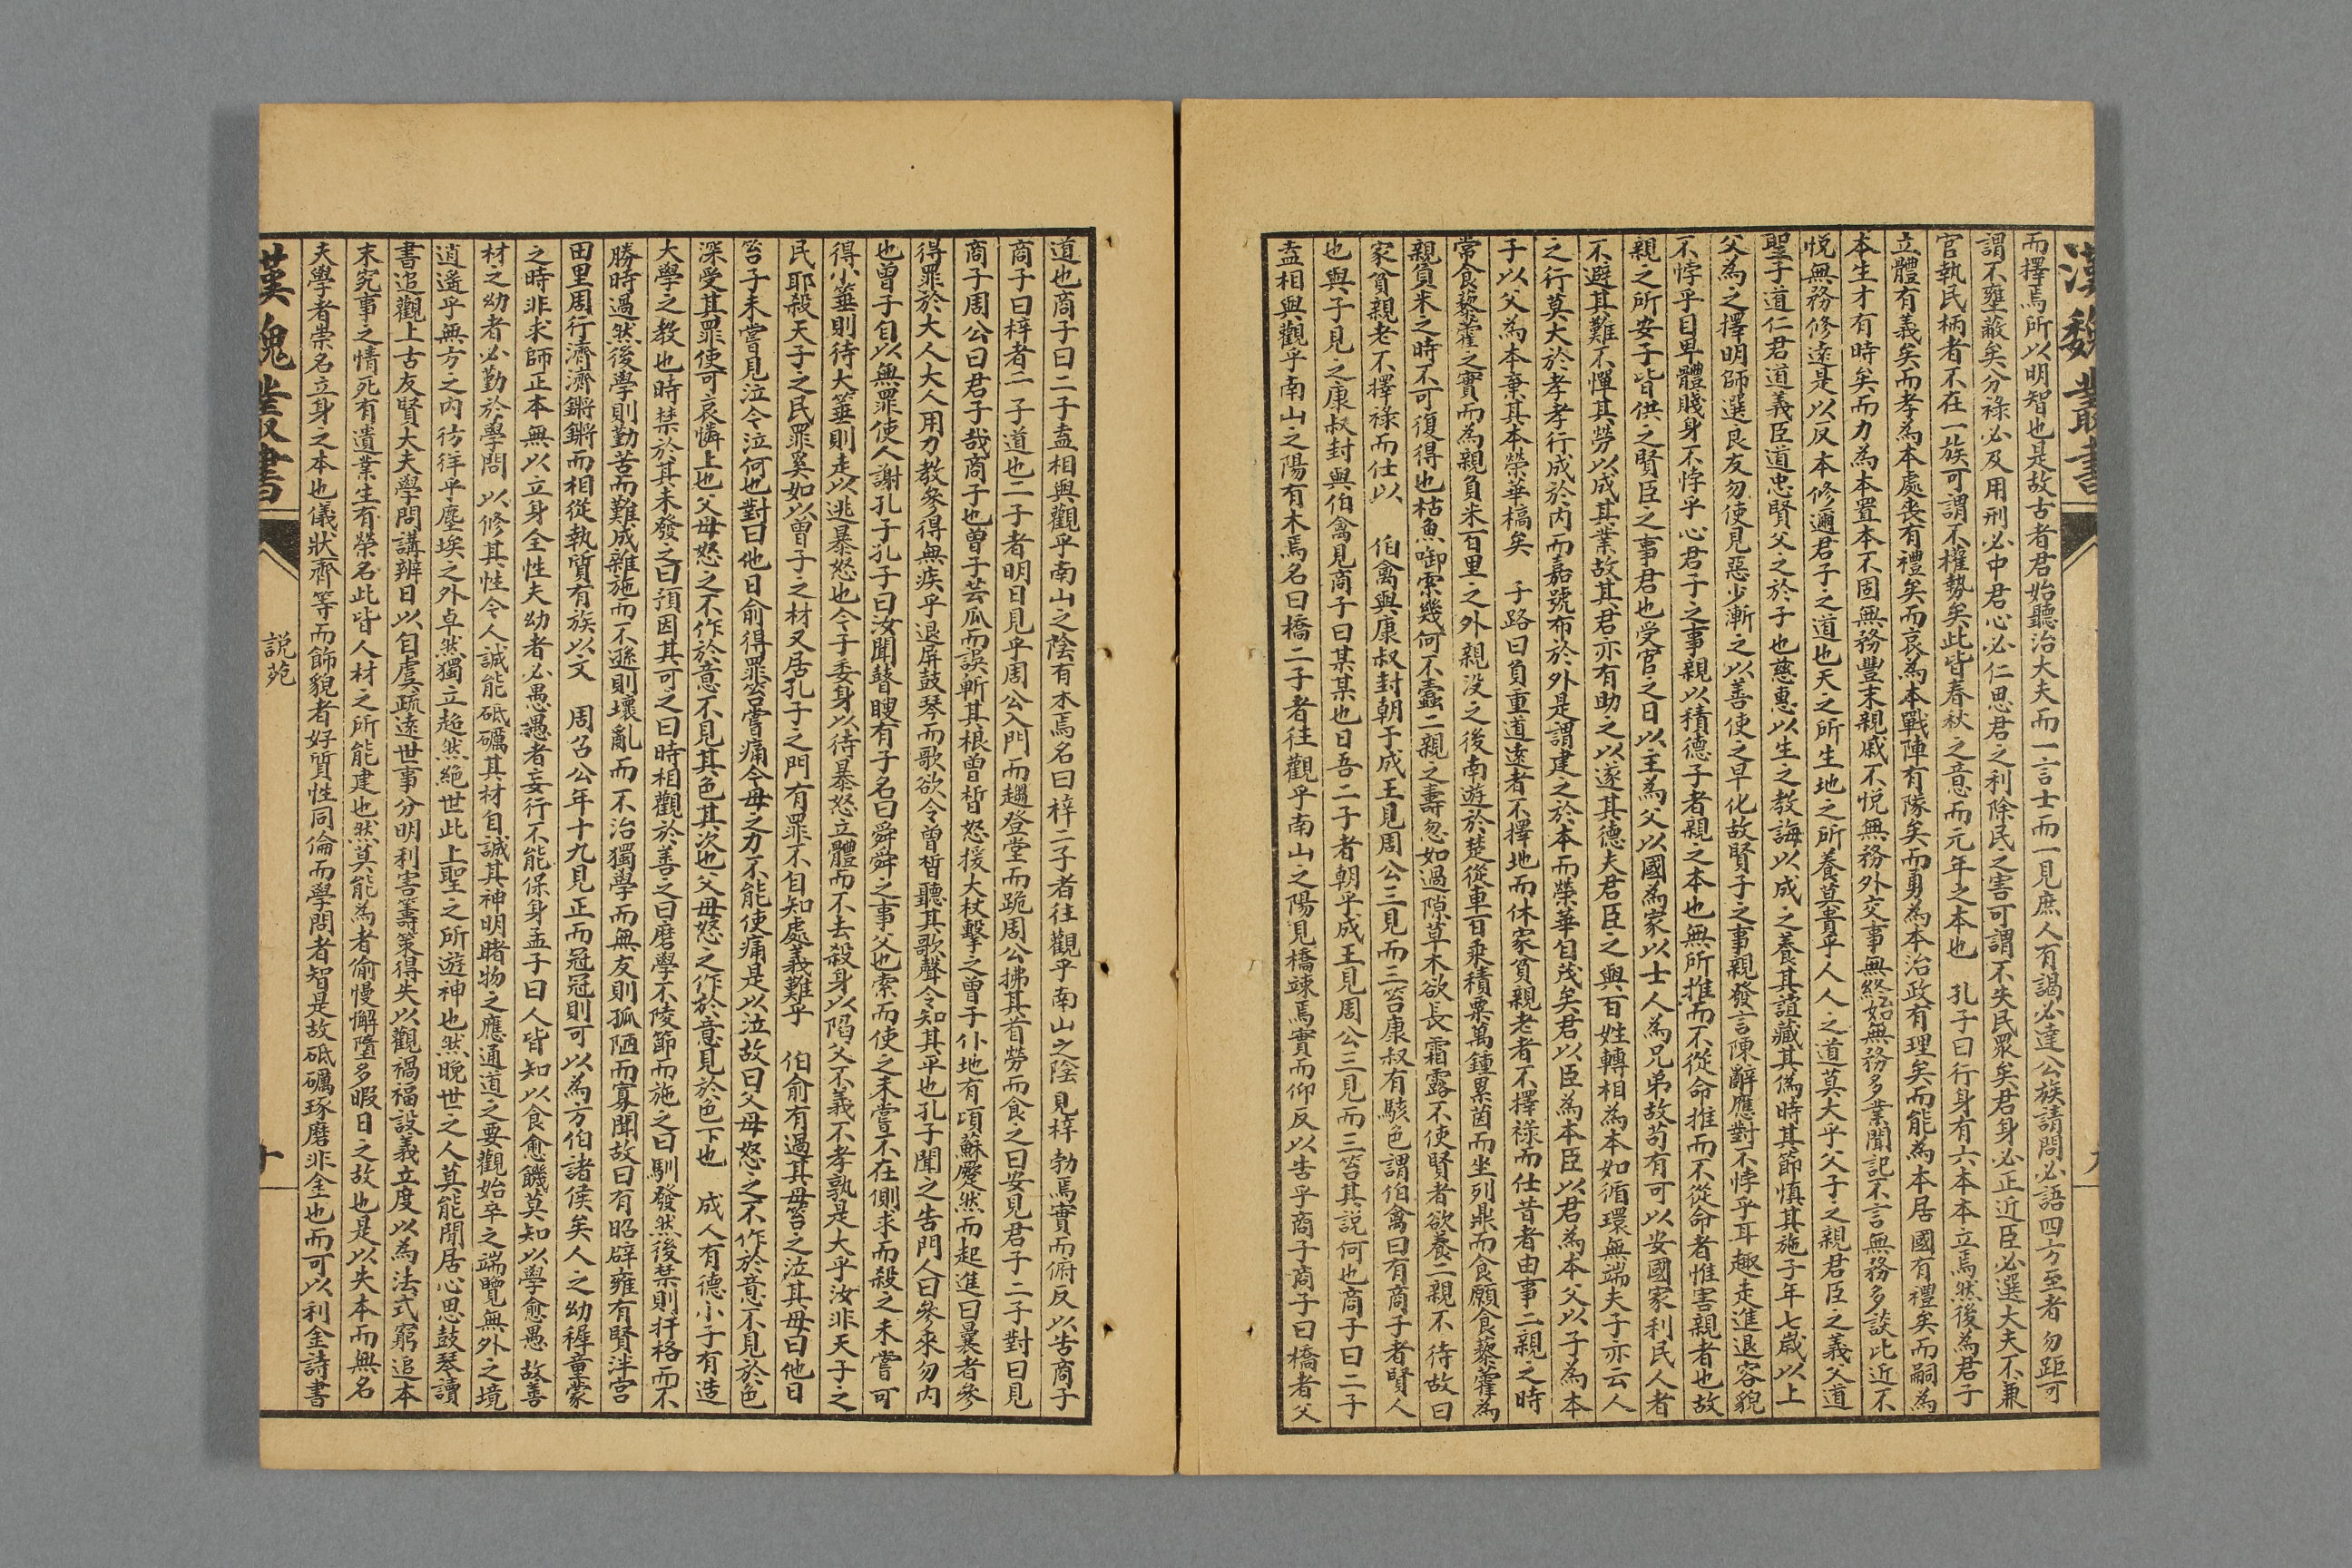 漢魏叢書
九
而擇焉所以明智也是故古者君始聽治大夫而一言士而一見庶人有謁必達公族請問必語四方至者勿距可
謂不壅蔽矣分祿必及用刑必中君心必仁思君之利除民之害可謂不失民眾矣君身必正近臣必選大夫不兼
官執民柄者不在一族可謂不權勢矣此皆春秋之意而元年之本也　孔子曰行身有六本本立焉然後為君子
立體有義矣而孝為本處喪有禮矣而哀為本戰陣有隊矣而勇為本治政有理矣而能為本居國有禮矣而嗣為
本生才有時矣而力為本置本不固無務豐末親戚不悅無務外交事無終始無務多業聞記不言無務多談比近不
悅無務修遠是以反本修邇君子之道也天之所生地之所養莫貴乎人人之道莫大乎父子之親君臣之義父道
聖子道仁君道義臣道忠賢父之於子也慈惠以生之教誨以成之養其誼藏其偽時其節慎其施子年七歲以上
父為之擇明師選良友勿使見惡少漸之以善使之早化故賢子之事親發言陳辭應對不悖乎耳趣走進退容貌
不悖乎目卑體賤身不悖乎心君子之事親以積德子者親之本也無所推而不從命推而不從命者惟害親者也故
親之所安子皆供之賢臣之事君也受官之日以主為父以國為家以士人為兄弟故苟有可以安國家利民人者
不避其難不憚其勞以成其業故其君亦有助之以遂其德夫君臣之與百姓轉相為本如循環無端夫子亦云人
之行莫大於孝孝行成於內而嘉號布於外是謂建之於本而榮華自茂矣君以臣為本臣以君為本父以子為本
子以父為本棄其本榮華槁矣　子路曰負重道遠者不擇地而休家貧親老者不擇祿而仕昔者由事二親之時
常食藜藿之實而為親負米百里之外親沒之後南遊於楚從車百乘積粟萬鍾累茵而坐列鼎而食願食藜藿為
親負米之時不可復得也枯魚啣索幾何不蠹二親之壽忽如過隙草木欲長霜露不使賢者欲養二親不待故曰
家貧親老不擇祿而仕以　伯禽與康叔封朝于成王見周公三見而三笞康叔有駭色謂伯禽曰有商子者賢人
也與子見之康叔封與伯禽見商子曰某某也日吾二子者朝乎成王見周公三見而三笞其說何也商子曰二子
盍相與觀乎南山之陽有木焉名曰橋二子者往觀乎南山之陽見橋竦焉實而仰反以告乎商子商子曰橋者父
道也商子曰二子盍相與觀乎南山之陰有木焉名曰梓二子者往觀乎南山之陰見梓勃焉實而俯反以告商子
商子曰梓者二子道也二子者明日見乎周公入門而趨登堂而跪周公拂其首勞而食之曰安見君子二子對曰見
商子周公曰君子哉商子也曾子芸瓜而誤斬其根曾皙怒援大杖擊之曾子仆地有頃蘇蹷然而起進曰曩者參
得罪於大人大人用力教參得無疾乎退屏鼓琴而歌欲令曾皙聽其歌聲令知其平也孔子聞之告門人曰參來勿內
也曾子自以無罪使人謝孔子孔子曰汝聞瞽瞍有子名曰舜舜之事父也索而使之未嘗不在側求而殺之未嘗可
得小箠則待大箠則走以逃暴怒也今子委身以待暴怒立體而不去殺身以陷父不義不孝孰是大乎汝非天子之
民耶殺天子之民罪奚如以曾子之材又居孔子之門有罪不自知處義難乎　伯俞有過其母笞之泣其母曰他日
笞子未嘗見泣今泣何也對曰他日俞得罪笞嘗痛今母之力不能使痛是以泣故曰父母怒之不作於意不見於色
深受其罪使可哀憐上也父母怒之不作於意不見其色其次也父母怒之作於意見於色下也　成人有德小子有造
大學之教也時禁於其未發之曰預因其可之曰時相觀於善之曰磨學不陵節而施之曰馴發然後禁則扞格而不
勝時過然後學則勤苦而難成雜施而不遜則壞亂而不治獨學而無友則孤陋而寡聞故曰有昭辟雍有賢泮宮
田里周行濟濟鏘鏘而相從執質有族以文　周召公年十九見正而冠冠則可以為方伯諸侯矣人之幼穉童蒙
之時非求師正本無以立身全性夫幼者必愚愚者妄行不能保身孟子曰人皆知以食愈饑莫知以學愈愚故善
材之幼者必勤於學問以修其性今人誠能砥礪其材自誠其神明睹物之應通道之要觀始卒之端覽無外之境
逍遙乎無方之內彷徉乎塵埃之外卓然獨立超然絕世此上聖之所遊神也然晚世之人莫能閒居心思鼓琴讀
書追觀上古友賢大夫學問講辨日以自虞疏遠世事分明利害籌策得失以觀禍福設義立度以為法式窮追本
末究事之情死有遺業生有榮名此皆人材之所能建也然莫能為者偷慢懈墮多暇日之故也是以失本而無名
夫學者崇名立身之本也儀狀齊等而飾貌者好質性同倫而學問者智是故砥礪琢磨非金也而可以利金詩書
漢魏叢書
說苑
十